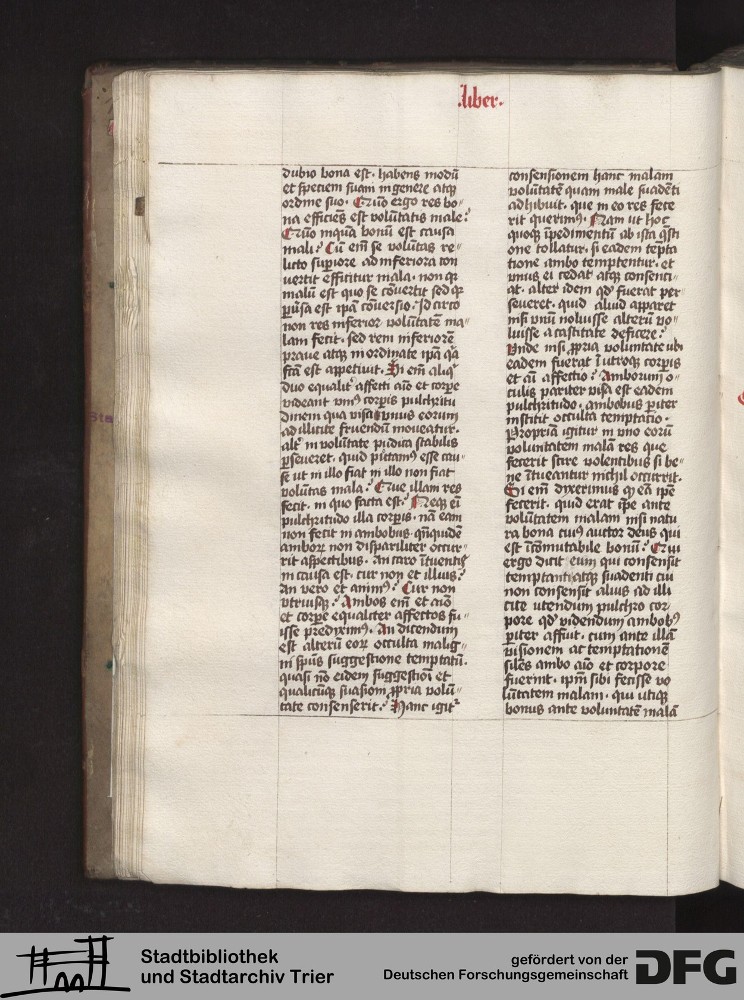 .liber.
dubio bona est. habens modū
et speciem suam in genere atqꝫ
ordine suo. Quo ergo res bo⸗
na efficiēs est volūtatis male?
Quō inquā bonū est causa
mali? Cū em̄ se voluntas re⸗
licto supiore ad inferiora con
uertit efficitur mala. non qꝛ
malū est quo se cōuertit sed qꝛ
puersa est ip̄a cōuersio. Idcirco
non res inferior volūtatē ma⸗
lam fecit. sed rem inferiorē
praue atqꝫ inordinate ip̄a qꝛ
fcā est appetiuit. Si em̄ aliqͥ
duo equalit affecti aīo et corpe
videant vniꝰ corpis pulchritu
dinem qua visa vnus eorum
ad illicite fruendū moueatur.
alt in volūtate pudica stabilis
pseueret. quid putamꝰ esse cau⸗
se ut in illo fiat in illo non fiat
volūtas mala? Que illam res
fecit. in quo facta est? Neqꝫ em̄
pulchritudo illa corpis. nā eam
non fecit in ambobus qn̄quidē
amborꝫ non dispariliter occur⸗
rit aspectibus. An caro ītuentis
in causa est. cur non et illius?
An vero et animꝰ? Cur non
vtriusqꝫ? Ambos em̄ et aīo
et corpe equaliter affectos fu⸗
isse prediximꝰ. An dicendum
est alterū eorꝫ occulta malig⸗
ni spūs suggestione temptatū.
quasi nō eidem suggestioni et
qualicūqꝫ suasioni ppria volū⸗
tate consenserit? Hanc igit
consensionem hanc malam
volūtatē quam male suadēti
adhibuit. que in eo res fece
rit querimꝰ. Nam ut hoc
quoqꝫ īpedimentū ab ista qsti
one tollatur. si eadem tepta
tione ambo temptentur. et
vnus ei cedat atqꝫ consenci⸗
at. alter idem qd fuerat per⸗
seueret. quid aliud apparet
nisi vnū noluisse alterū vo⸗
luisse a castitate deficere?
Vnde nisi ppria voluntate vbi
eadem fuerat ī utroqꝫ corpis
et aī affectio? Amborum o⸗
culis pariter visa est eadem
pulchritudo. ambobus piter
institit occulta temptatio.
Propriā igitur in vno eorū
voluntatem malā res que
fecerit scire volentibus si be⸗
ne ītueantur nichil occurrit.
Si em̄ dixerimus qꝛ eā ip̄e
fecerit. quid erat ip̄e ante
volūtatem malam nisi natu
ra bona cuiꝰ auctor deus qui
est īcōmutabile bonū? Qui
ergo dicit eum qui consensit
temptanti atqꝫ suadenti cui
non consensit alius ad illi
cite utendum pulchro cor⸗
pore qd videndum ambobꝰ
piter affuit. cum ante illā
visionem ac temptationē
siles ambo aīo et corpore
fuerint. ipm̄ sibi fecisse vo
lūtatem malam. qui utiqꝫ
bonus ante voluntatē malā
Sta
Stadtbibliothek
und Stadtarchiv Trier
gefördert von der
Deutschen Forschungsgemeinschaft
DFG